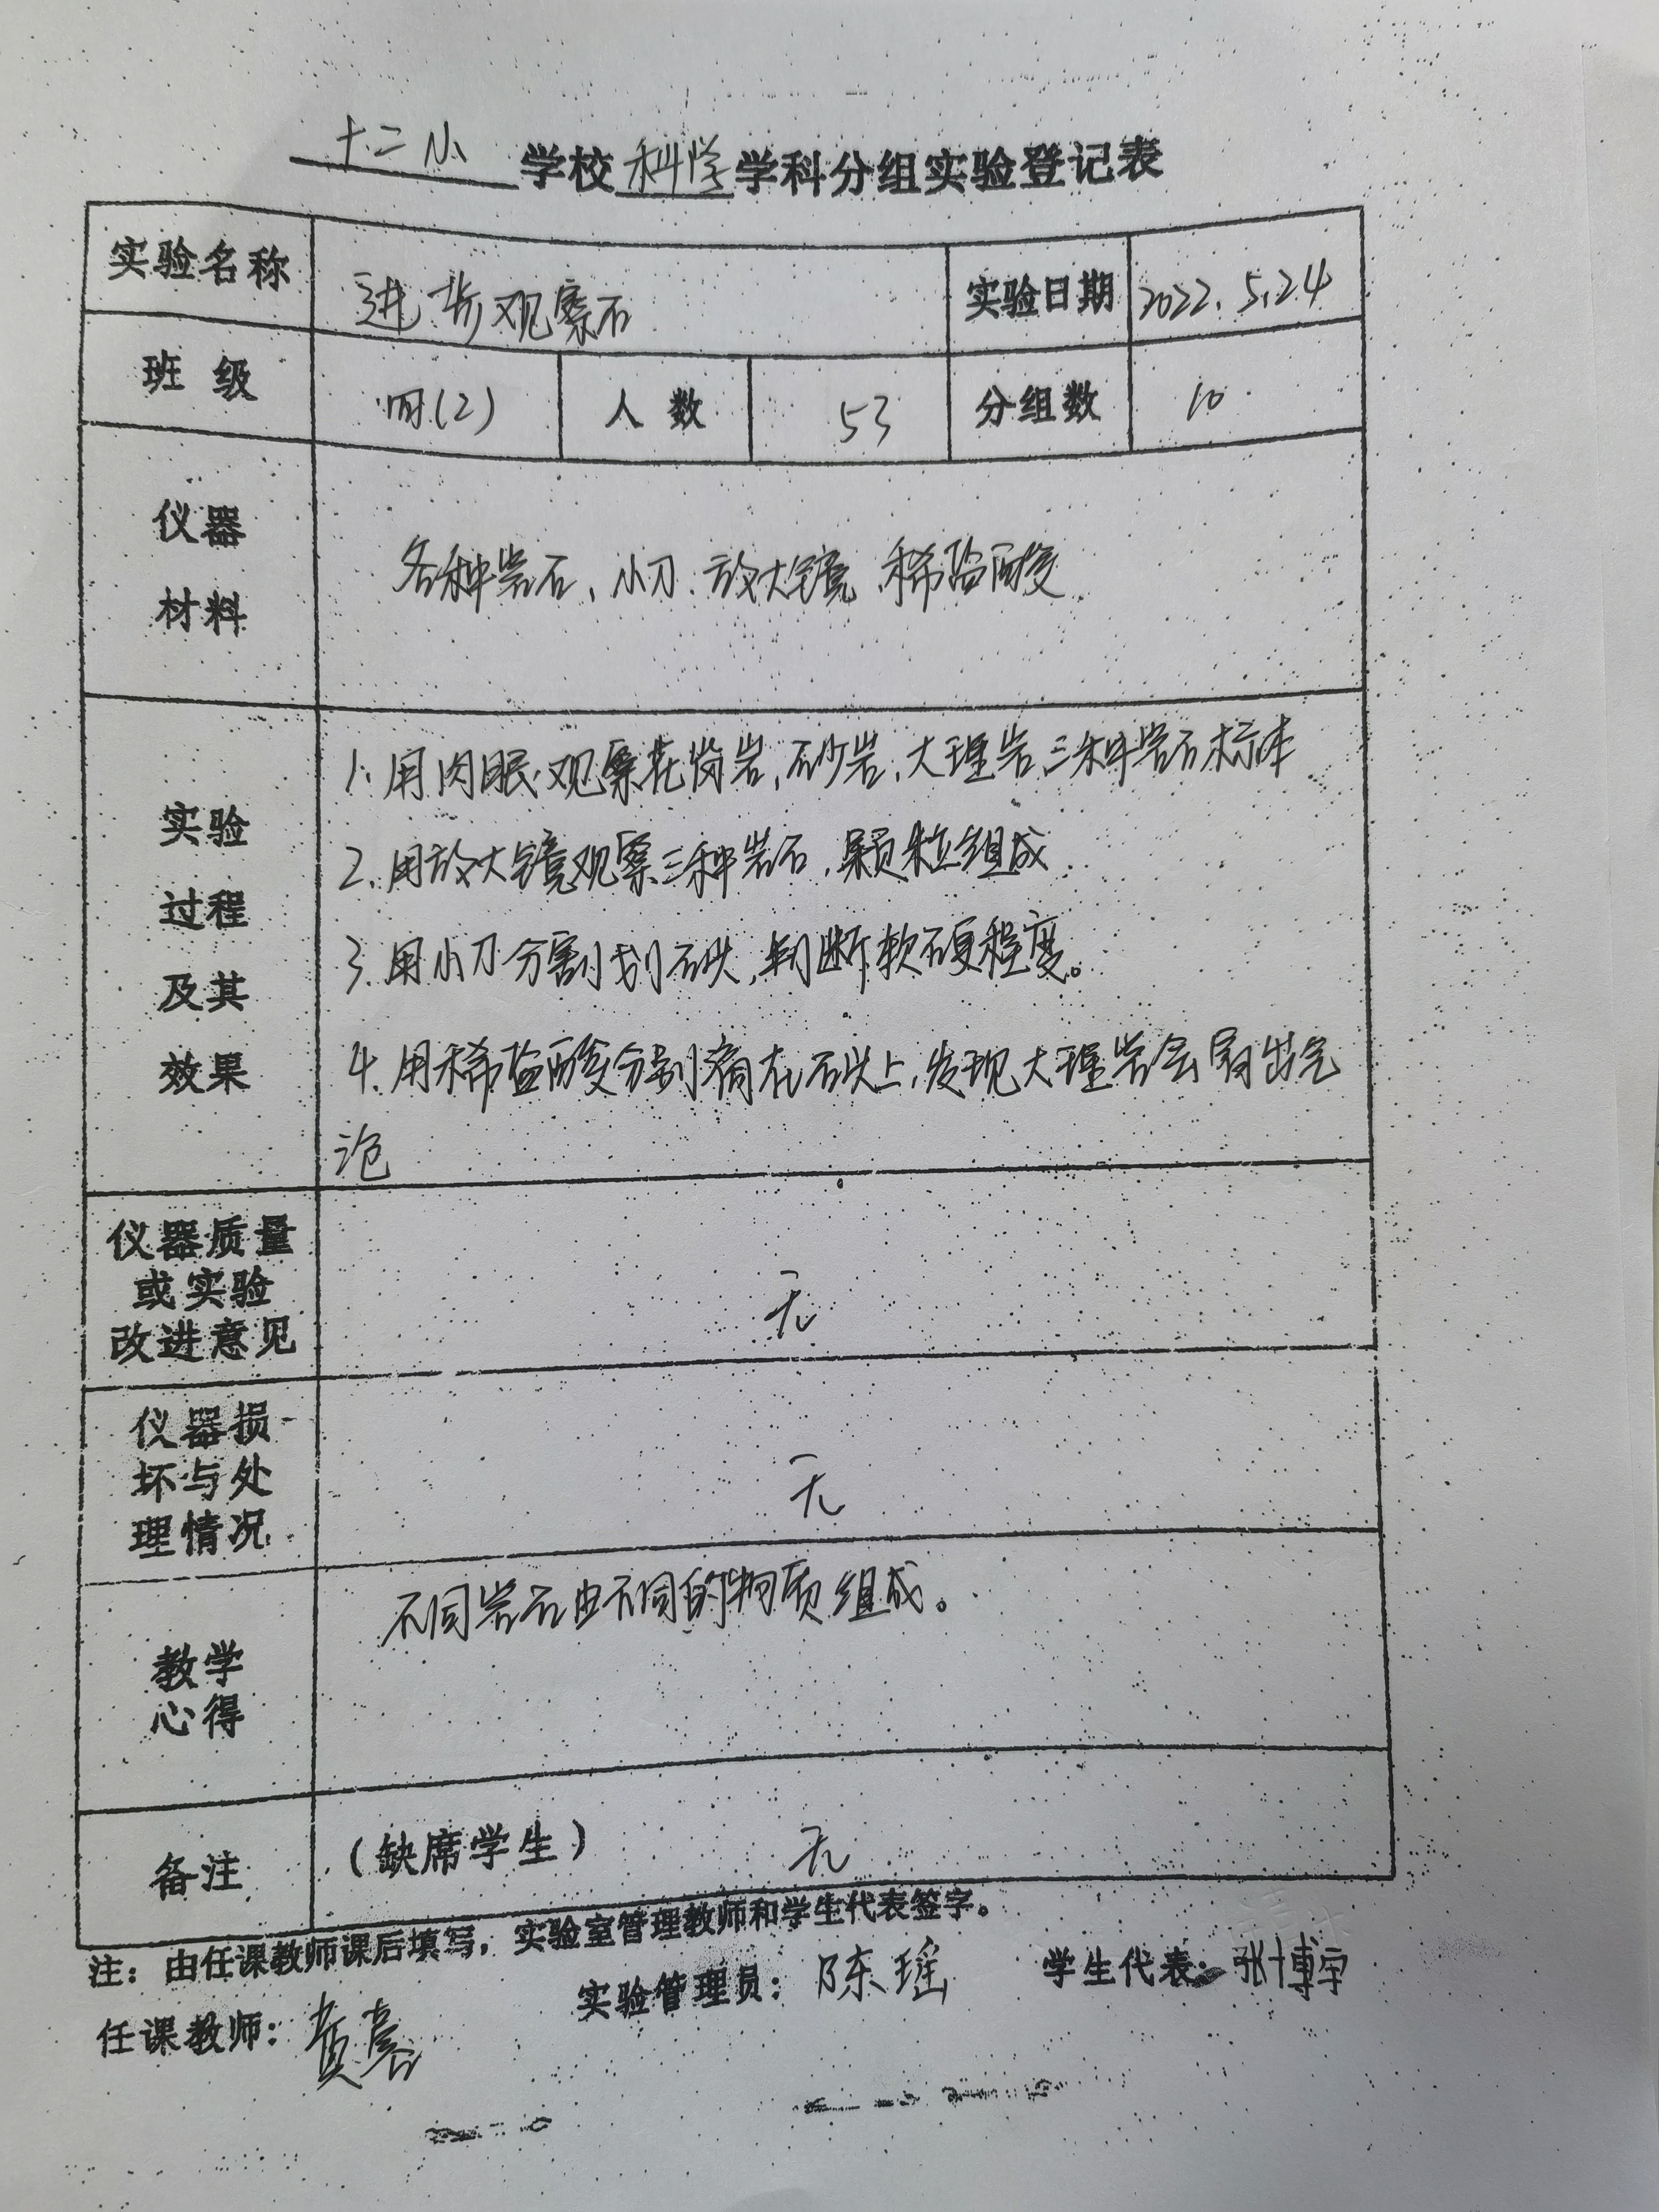 十二小 学校 科学 学科分组实验登记表
实验名称 进步观察石 实验日期 2022.5.24
班 级 四(2) 人 数 53 分组数 10
仪器
材料
各种岩石、小刀、放大镜、稀盐酸
实验
过程
及其
效果
1.用肉眼观察花岗岩,砂岩,大理岩三种岩石标本
2.用放大镜观察三种岩石,颗粒组成
3.用小刀分割划石头,判断软硬程度。
4.用稀盐酸分别滴在石头上,发现大理岩会冒出气
泡
仪器质量
或实验
改进意见
无
仪器损
坏与处
理情况
无
教学
心得
不同岩石由不同的物质组成。
备注 (缺席学生) 无
注:由任课教师课后填写,实验室管理教师和学生代表签字。
任课教师: 实验管理员:陈瑶 学生代表:张博宇